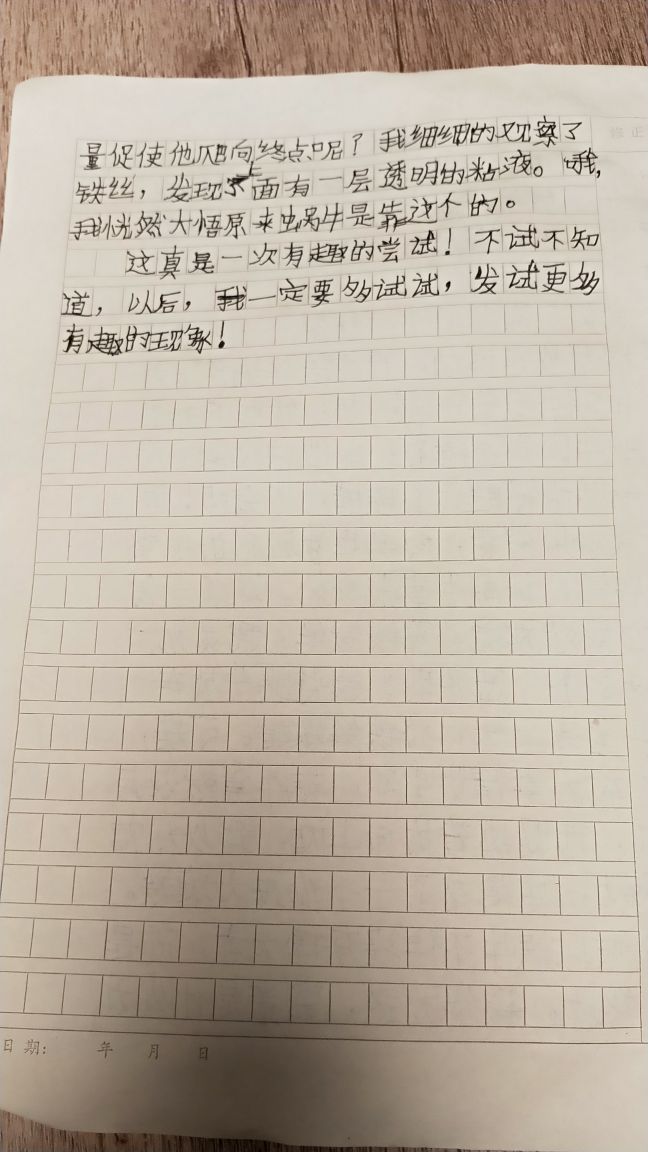 量促使他爬向终点呢？我细细的观察了
铁丝，发现上面有一层透明的粘液。哦，
我恍然大悟原来蜗牛是靠这个的。
这真是一次有趣的尝试！不试不知
道，以后，我一定要多试试，发试更多
有趣的现象！
日期： 年 月 日